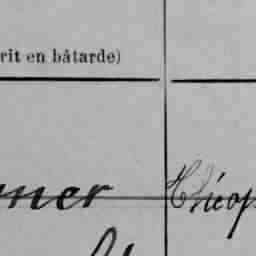 rit en bâtarde)
mer Théop